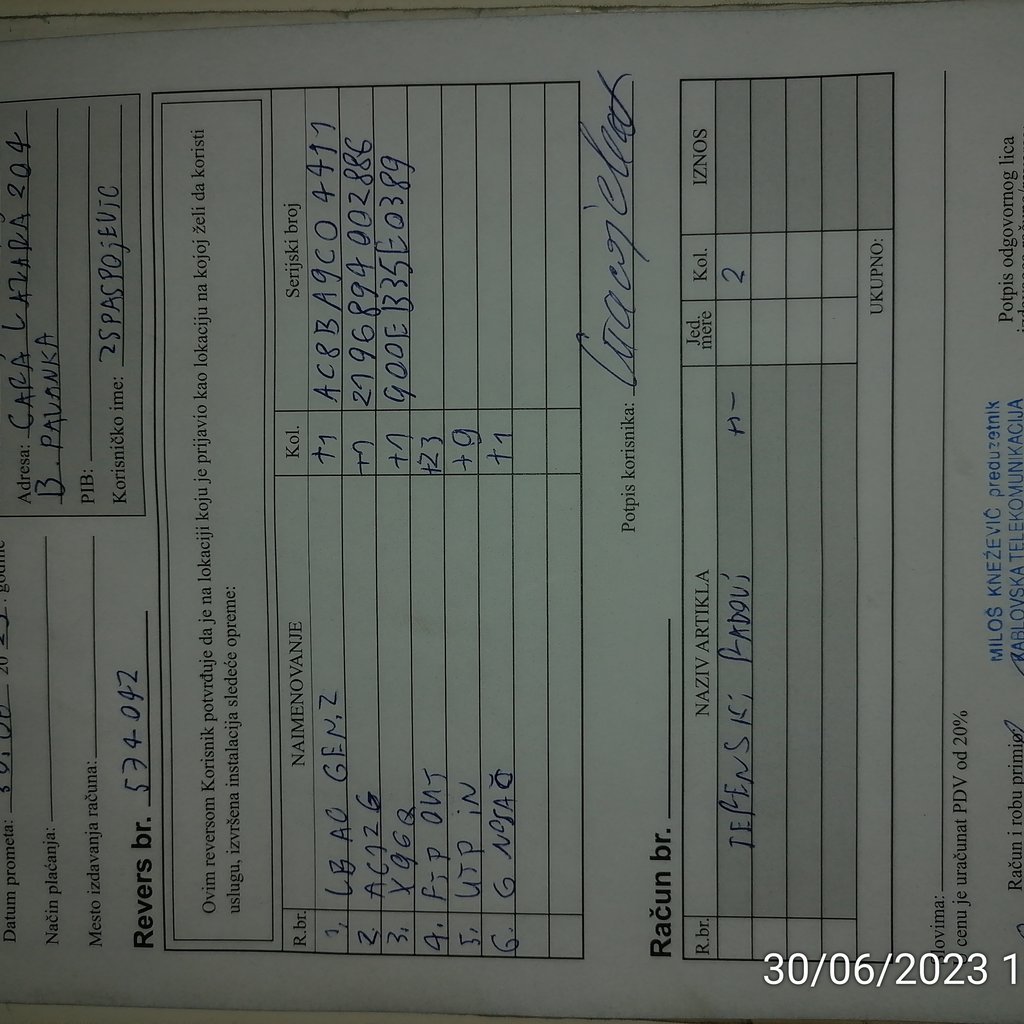 Datum prometa: 20 . godine
Način plaćanja:
Mesto izdavanja računa:
Adresa: CARA LAZARA 204
B. PALANKA
PIB:
Korisničko ime: 2SPASOJEVIC
Revers br. 574-042
Ovim reversom Korisnik potvrđuje da je na lokaciji koju je prijavio kao lokaciju na kojoj želi da koristi
uslugu, izvršena instalacija sledeće opreme:
R.br. NAIMENOVANJE Kol. Serijski broj
1. LBAC GEN.2 +1 AC8BA9C04411
2. AC12G +1 2196894002886
3. X96Q +1 G00EB35E0389
4. FTP OUT +23
5. UTP IN +9
6. G NOSAČ +1
Potpis korisnika:
Račun br.
R.br. NAZIV ARTIKLA Jed. mere Kol. IZNOS
TERENSKI RADOVI -11- 2
UKUPNO:
U cenu je uračunat PDV od 20%
Račun i robu primio
MILOŠ KNEŽEVIĆ preduzetnik
KABLOVSKA TELEKOMUNIKACIJA
Potpis odgovornog lica
30/06/2023 1